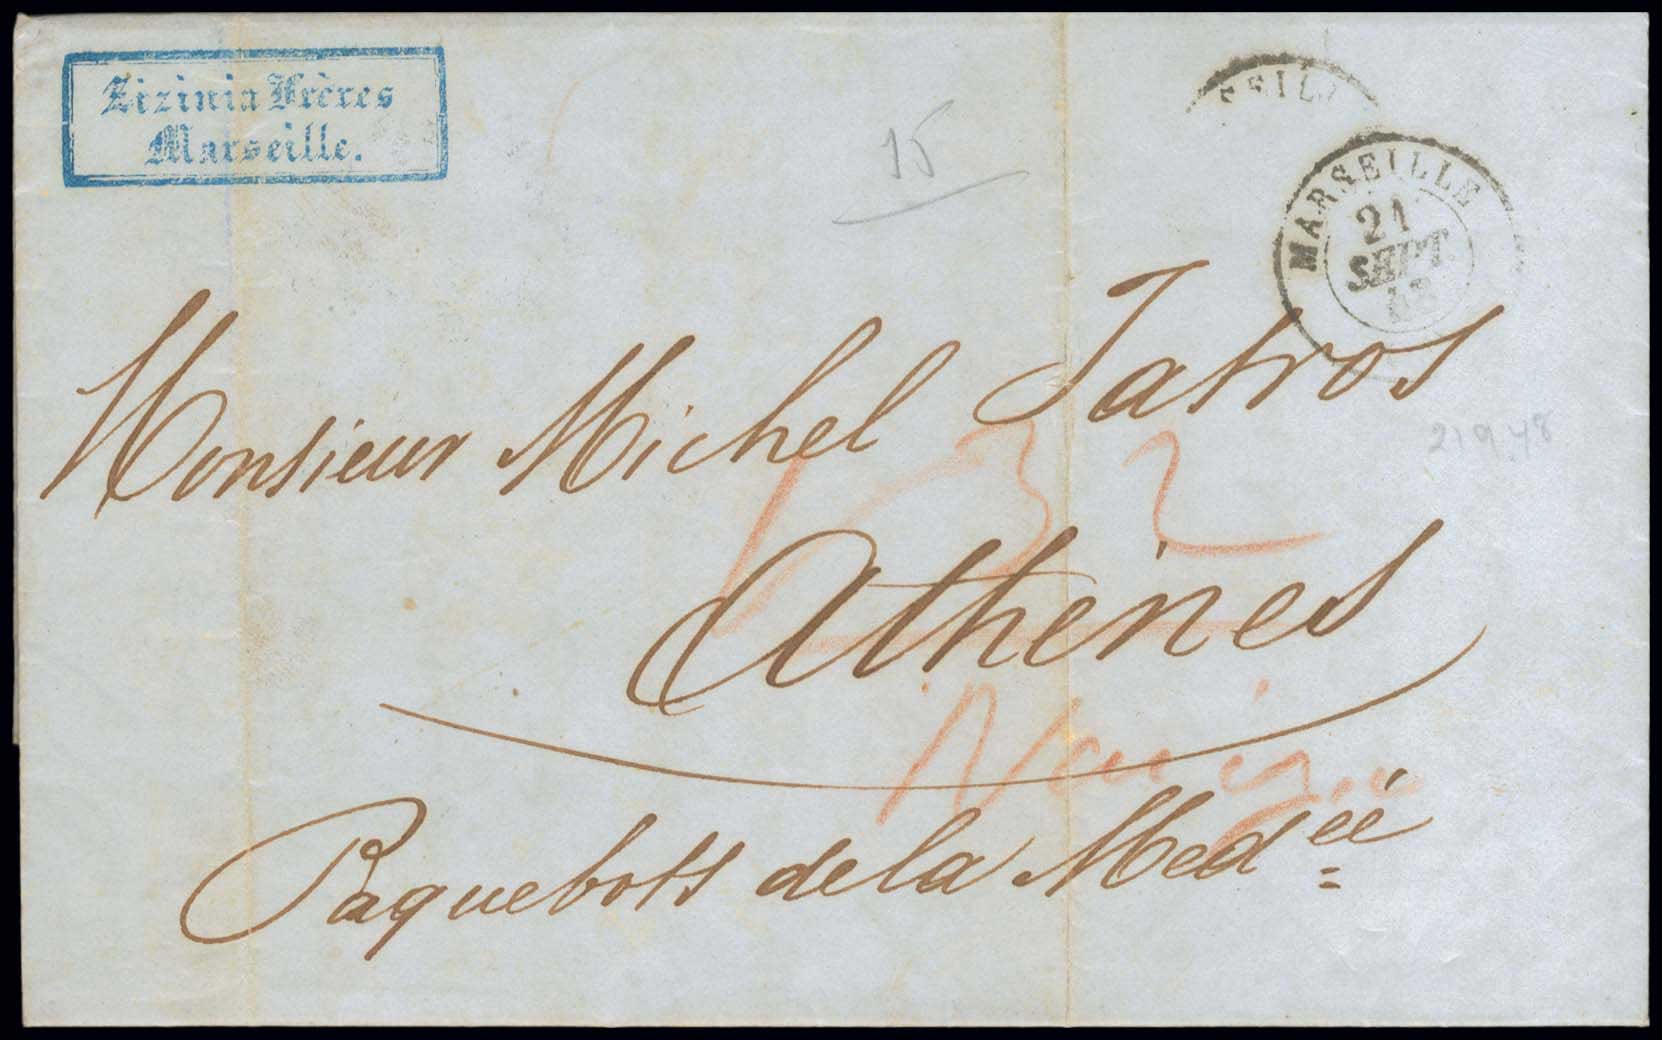 Zizinia Frères
Marseille.
15
SEILL
MARSEILLE
21
SEPT
48
Monsieur Michel Iatros
21 9.48
132
Athènes
Paquebots de la Medée